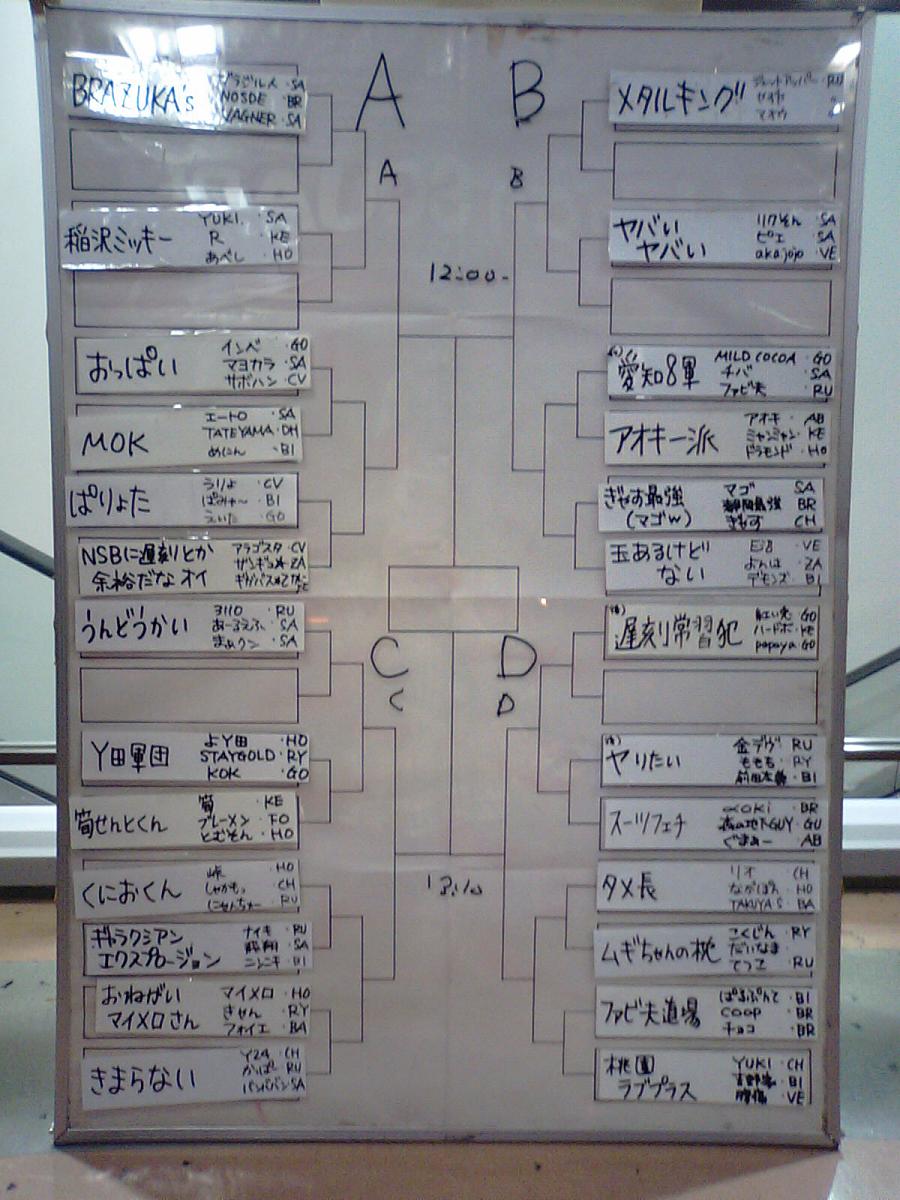 A
A
BRAZUKA's
ブラジル人 ・SA
NOSDE ・BR
VAGNER ・SA
稲沢ミッキー
YUKI. ・SA
R ・KE
あべし ・HO
おっぱい
インベ ・GO
マヨカラ ・SA
サボハン ・CV
MOK
エートロ ・SA
TATEYAMA ・DH
めにん ・BI
ぱりょた
うりょ ・CV
ぱみゅ〜 ・BI
えいた ・GO
NSBに遅刻とか
余裕だな オイ
アラゴスタ ・CV
・ZA
B
B
メタルキング
・RU
マオウ
ヤバい
ヤバい
・SA
ピエ ・SA
akajojo ・VE
愛知8軍
MILD COCOA ・GO
チバ ・SA
ファビ夫 RU
アオキ一派
アオキ ・AB
ミャンミャン ・KE
ドラモンド ・HO
ぎゃす最強
(マゴw)
マゴ SA
静岡最強 BR
ぎゃす CH
玉あるけど
ない
・VE
よんは ・ZA
デモンズ ・BI
12:00-
C
C
うんどうかい
3110 ・RU
あーるえふ ・SA
まぁクン ・SA
Y田軍団
よY田 ・HO
STAYGOLD ・RY
KOK ・GO
筍せんとくん
筍 ・KE
ブレーメン ・FO
とむそん ・HO
くにおくん
峠 ・HO
しゃかもっ ・CH
にゃんちゅー ・RU
ギャラクシアン
エクスプロージョン
ナイキ ・RU
・SA
ニシニキ ・BI
おねがい
マイメロさん
マイメロ ・HO
きせん ・RY
フォイエ ・BA
きまらない
Y24 ・CH
かぱー ・RU
バンババン SA
D
D
遅刻常習犯
紅い売 GO
ハードボ ・KE
papaya GO
ヤりたい
金デヴ RU
ももも ・RY
・BI
スーツフェチ
・BR
森の地下GUY ・GU
ぐまぁー AB
タメ長
リオ ・CH
ながぽん ・HO
TAKUYA'S ・BA
ムギちゃんの枕
こくじん ・RY
だいなま
てつ工 ・RU
ファビ夫道場
ぱるぷんて ・BI
COOP ・BR
チョコ ・BR
桃園
ラブプラス
YUKI ・CH
吉野家 ・BI
・VE
13:10